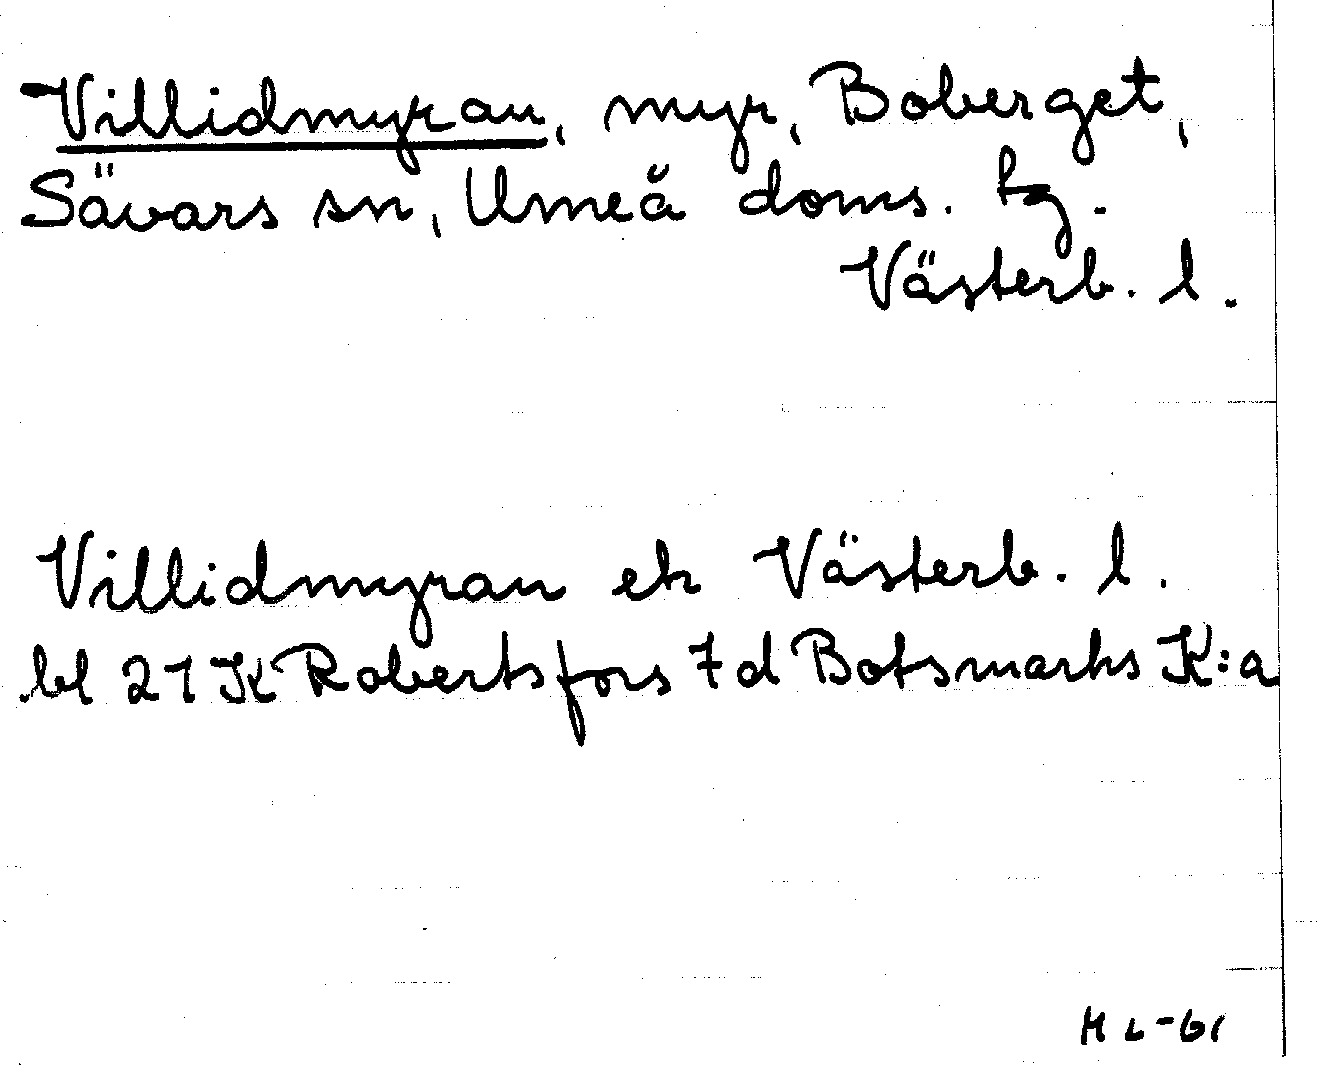 Villidmyran, myr, Boberget,
Sävars sn, Umeå doms. tg.
Västerb. l.
Villidmyran ek Västerb. l.
bl 21 K Robertsfors 7d Botsmarks K:a
H L-61